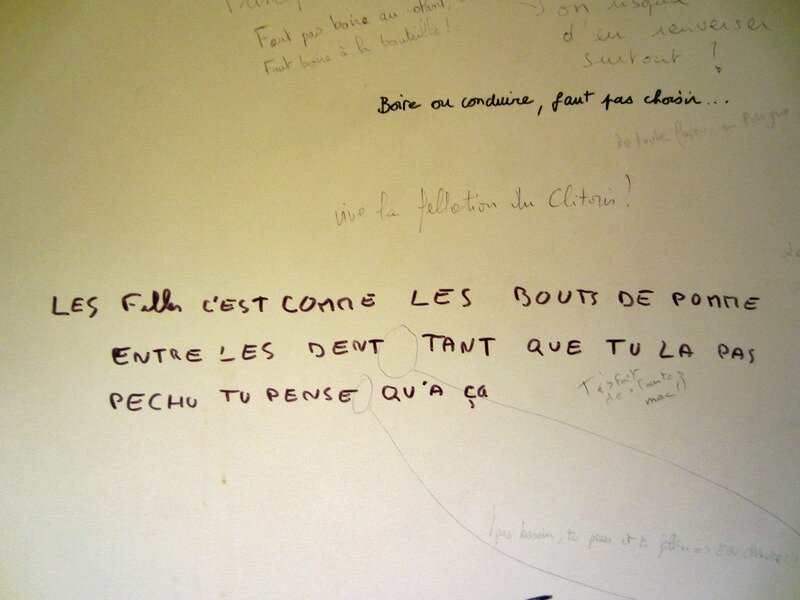 Faut pas boire au volant,
Faut boire à la bouteille!
on risque
d'en renverser
surtout !
Boire ou conduire, faut pas choisir...
de toute façon, en
vive la fellation du Clitoris!
LES Filles C'EST COMME LES BOUTS DE POMME
ENTRE LES DENT TANT QUE TU LA PAS
PECHU TU PENSE QU'A ça
pas besoin, tu et tu